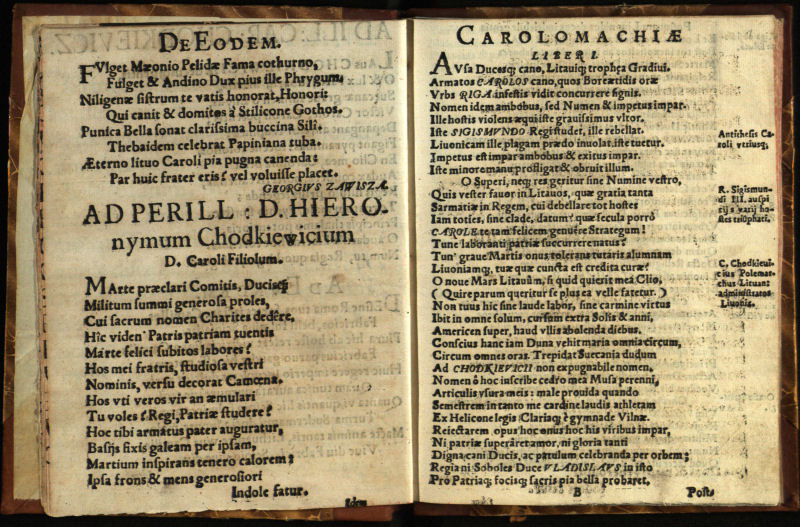 DE EODEM.
FVlget Mæonio Pelidæ Fama cothurno,
Fulget & Andino Dux pius ille Phrygum,
Niligenæ sistrum te vatis honorat, Honori:
Qui canit & domitos à Stilicone Gothos.
Punica Bella sonat clarissima buccina Silî.
Thebaidem celebrat Papiniana tuba.
Æterno lituo Caroli pia pugna canenda:
Par huic frater eris? vel voluisse placet.
GEORGIVS ZAWISZA.
AD PERILL: D. HIERO-
nymum Chodkiewicium
D. Caroli Filiolum.
MArte præclari Comitis, Ducisq;
Militum summi generosa proles,
Cui sacrum nomen Charites dedêre,
Hîc viden' Patris patriam tuentis
Marte felici subitos labores?
Hos mei fratris, studiosa vestri
Nominis, versu decorat Camœna.
Hos vti veros vir an æmulari
Tu voles? Regi, Patriæ studere?
Hoc tibi armatus pater auguratur,
Basijs fixis galeam per ipsam,
Martium inspirans tenero calorem;
Ipsa frons & mens generosiori
Indole fatur.
Idem
CAROLOMACHIÆ
LIBER I.
AVsa Ducesq; cano, Litauiq; trophęa Gradiui.
Armatos CAROLOS cano, quos Boreætidis oræ
Vrbs RIGA infestis vidit concurrere signis.
Nomen idem ambobus, sed Numen & impetus impar.
Ille hostis violens æqui iste grauissimus vltor.
Iste SIGISMVNDO Regi studet, ille rebellat.
Liuonicam ille plagam prædo inuolat, iste tuetur.
Impetus est impar ambobus & exitus impar.
Iste minor omane profligat & obruit illum.
O Superi, neq; res geritur sine Numine vestro,
Quis vester fauor in Litauos, quæ gratia tanta
Sarmatiæ in Regem, cui debellare tot hostes
Iam toties, sine clade, datum? quæ secula porrò
CAROLE te tam felicem genuêre Strategum!
Tune laboranti patriæ succurrere natus?
Tun' graue Martis onus tolerans tutaris alumnam
Liuoniamq; tuæ quæ cuncta est credita curæ?
O noue Mars Litauûm, si quid quierit mea Clio,
(Quire parum queritur se plus ea velle fatetur.)
Non tuus hîc sine laude labos, sine carmine virtus
Ibit in omne solum, cursum extra Solis & anni,
Americen super, haud vllis abolenda diebus.
Conscius hanc iam Duna vehit maria omnia circum,
Circum omnes oras. Trepidat Suecania dudum
Ad CHODKIEVICII non expugnabile nomen.
Nomen ô hoc inscribe cedro mea Musa perenni,
Articulis vsura meis: male prouida quando
Semestrem in tanto me cardine laudis athletam
Ex Helicone legis Clariaq; è gymnade Vilnæ.
Reiectarem opus hoc onus hoc his viribus impar,
Ni patriæ superâret amor, ni gloria tanti
Digna cani Ducis, ac patulum celebranda per orbem;
Regia ni Soboles Duce VLADISLAVS in isto
Prò Patriaq; focisq; sacris pia bella probaret.
B Post
Antithesis Ca-
roli vtriusq;
R. Sigismun-
di III. auspi-
cijs varij ho-
stes triũphati.
C. Chodkieui-
cius Polemar-
chus Lituan:
administrator
Liuonię.